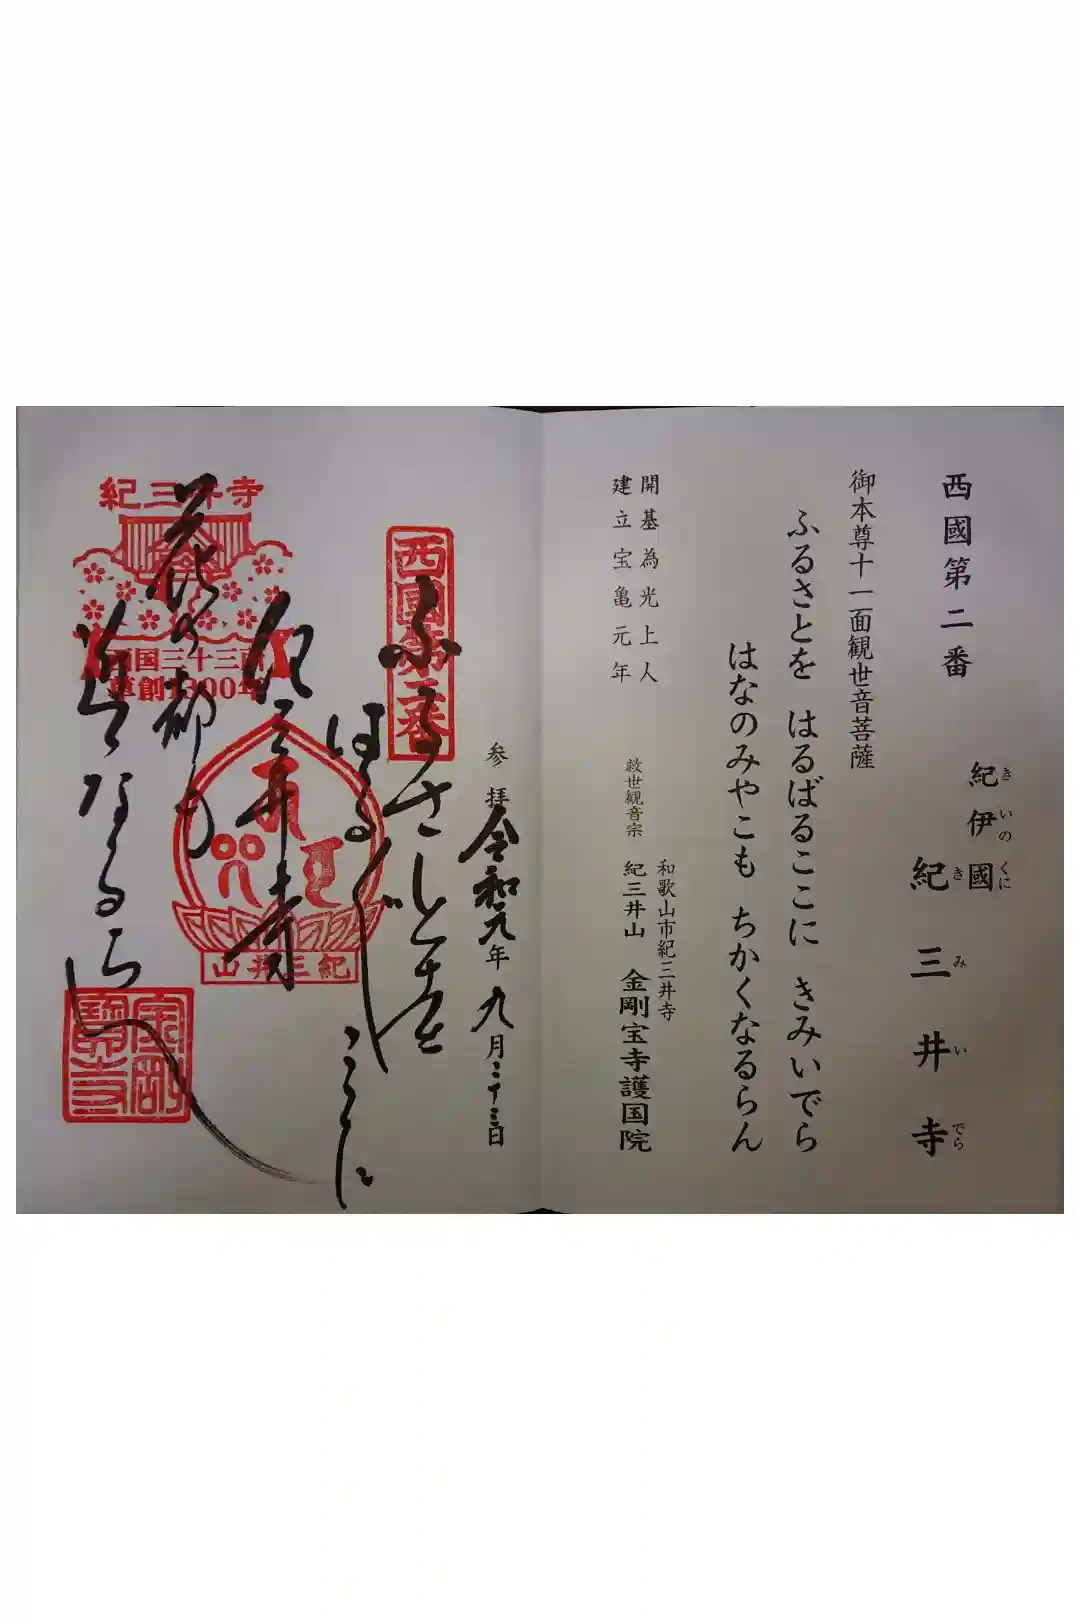 西國第二番
紀伊國
きいのくに
紀三井寺
きみいでら
御本尊十一面観世音菩薩
ふるさとを はるばるここに きみいでら
はなのみやこも ちかくなるらん
開基為光上人
建立宝亀元年
和歌山市紀三井寺
救世観音宗 紀三井山 金剛宝寺護国院
参拝 令和元年九月二十三日
西國第二番
ふるさとを
はるばる
ここに
紀三井寺
花の都も
近くなるらん
紀三井寺
西国三十三所
草創1300年
紀三井山
金剛寶寺